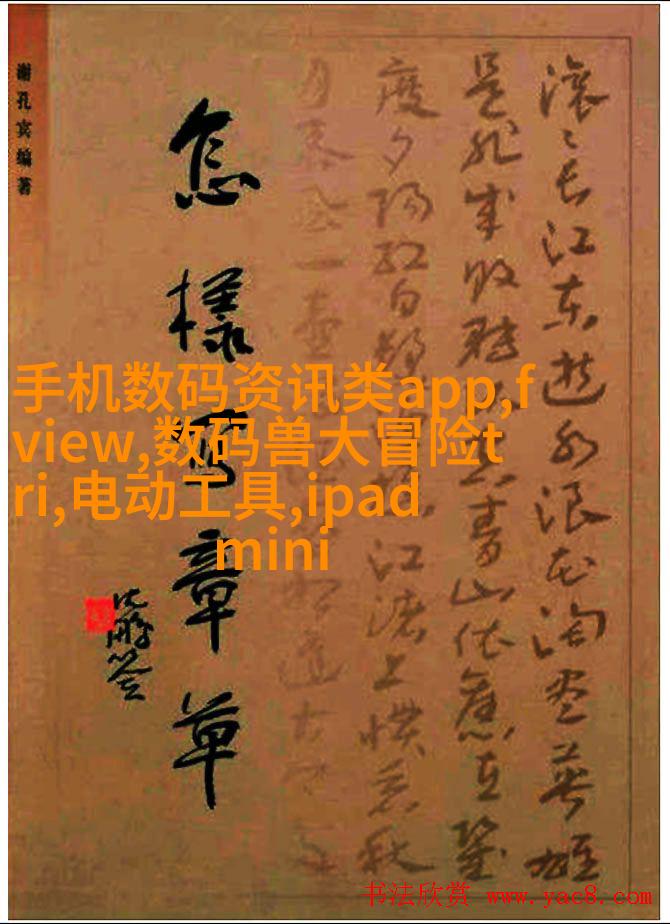 谢孔宾编著
怎樣写章草
沈鹏签
滚〻长江东逝水浪花淘尽英雄
是非成败转空青山依旧在几
度夕阳红白发江渚上惯看秋
月春风一壶相逢古今
手机数码资讯类app,f
view,数码兽大冒险t
ri,电动工具,ipad
mini
书法欣赏 www.yac8.com